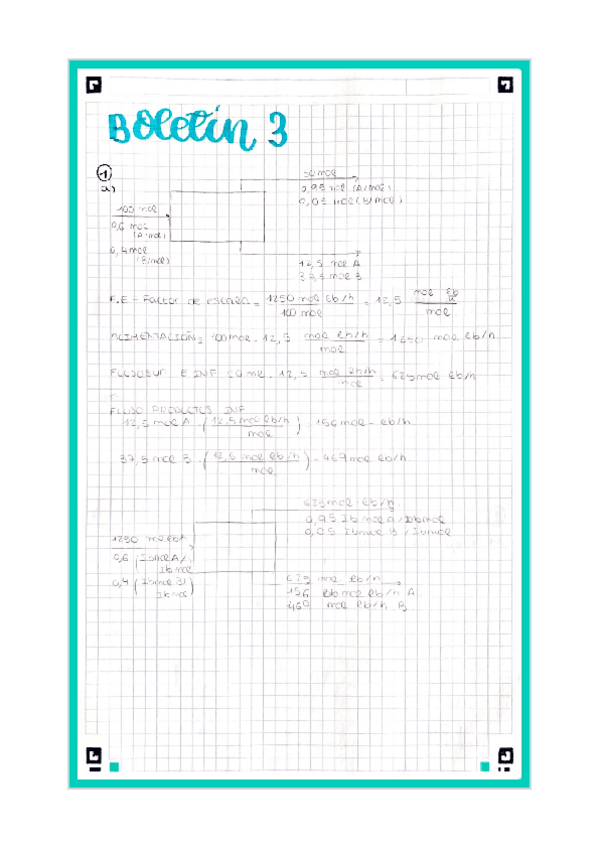 Boletín 3
1
a)
50 mol
0,95 mol (A/mol)
0,05 mol (B/mol)
100 mol
0,6 mol
(A/mol)
0,4 mol
(B/mol)
12,5 mol A
37,5 mol B
F.E - Factor de escala = 1250 mol lb/h / 100 mol = 12,5 mol lb/h / mol
ALIMENTACIÓN = 100 mol . 12,5 mol lb/h / mol = 1250 mol lb/h
FLUJO SUP E INF 50 mol . 12,5 mol lb/h / mol = 625 mol lb/h
FLUJO PRODUCTOS INF
12,5 mol A . (12,5 mol lb/h / mol) = 156 mol - lb/h
37,5 mol B . (12,5 mol lb/h / mol) = 469 mol lb/h
625 mol - lb/h
0,95 lbmol A / lbmol
0,05 lbmol B / lbmol
1250 mol lb/h
0,6 (lbmol A / lbmol)
0,4 (lbmol B / lbmol)
625 mol lb/h
156 lbmol lb/h A
469 mol lb/h B